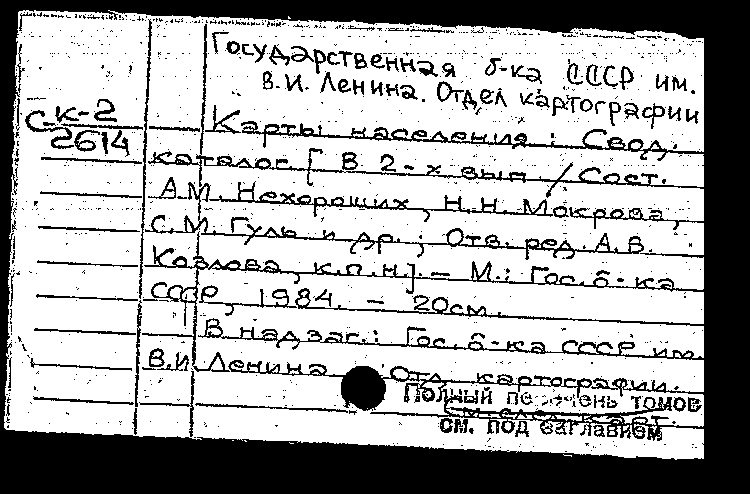 Государственная б-ка СССР им.
В.И. Ленина. Отдел картографии
С к-2
2614
Карты населения : Свод.
каталог [ В 2-х вып / Сост.
А.М. Нехороших, Н.Н. Мокрова,
С.М. Гуль и др. ; Отв. ред. А.В.
Козлова, к.п.н.]. – М.: Гос. б-ка
СССР, 1984. – 20см.
В надзаг.: Гос. б-ка СССР им.
В.И Ленина Отд. картографии.
Полный перечень томов
см. след. карт.
см. под заглавием